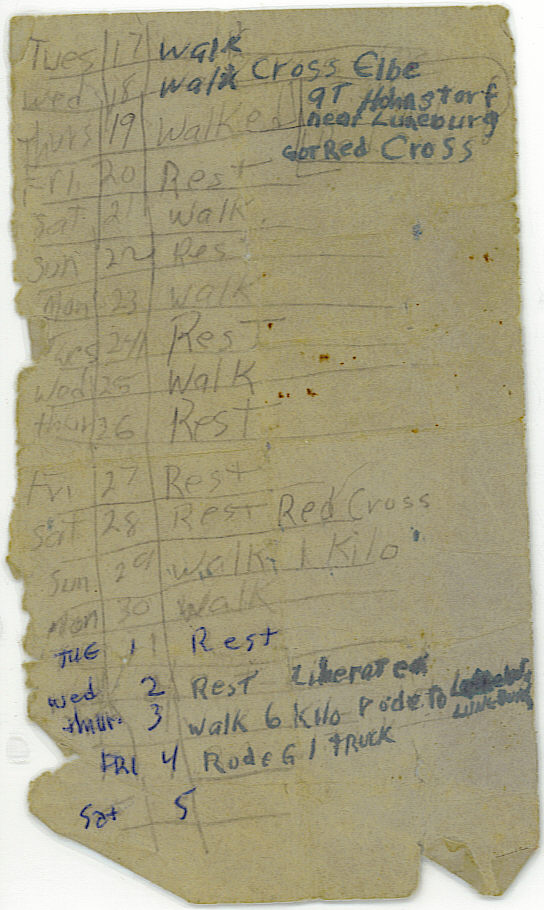 Tues 17 Walk
Wed 18 Walk Cross Elbe
at Hohnstorf
near Luneburg
Thurs 19 Walked
Got Red Cross
Fri 20 Rest
Sat 21 Walk
Sun 22 Rest
Mon 23 Walk
Tues 24 Rest
Wed 25 Walk
Thur 26 Rest
Fri 27 Rest
Sat 28 Rest Red Cross
Sun 29 Walk 1 Kilo
Mon 30 Walk
TUE 1 Rest
Wed 2 Rest Liberated
thur. 3 Walk 6 Kilo Rode to
LUNEBURG
FRI 4 Rode G I TRUCK
Sat 5